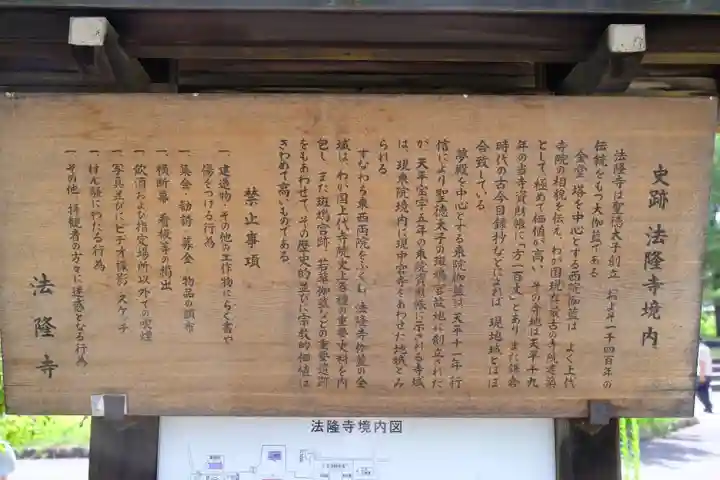 史跡 法隆寺境内
法隆寺は聖徳太子創立 およそ一千四百年の
伝統をもつ大伽藍である
金堂 塔を中心とする西院伽藍は よく上代
寺院の相貌を伝え、わが国現存最古の寺院建築
として、極めて価値が高い その寺地は天平十九
年の当寺資財帳に「方一百丈」とあり また鎌倉
時代の古今目録抄などによれば 現地域とほぼ
合致している
夢殿を中心とする東院伽藍は 天平十一年 行
信により 聖徳太子の斑鳩宮故地に創立された
が 天平宝字五年の東院資財帳に示される寺域
は、現東院境内に現中宮寺をあわせた地域とみ
られる
すなわち東西両院をふくむ 法隆寺伽藍の全
域は、わが国上代寺院史上各種の重要史料を内
包し また斑鳩宮跡 若草伽藍などの重要遺跡
をもあわせて その歴史的並びに宗教的価値は
きわめて高いものである
禁止事項
一、建造物 その他の工作物にらく書や
傷をつける行為
一、集金 勧誘 募金 物品の頒布
一、横断幕 看板等の掲出
一、飲酒および指定場所以外での喫煙
一、写真並びにビデオ撮影 スケッチ
一、けん騒にわたる行為
一、その他 拝観者の方々に迷惑となる行為
法隆寺
法隆寺境内図